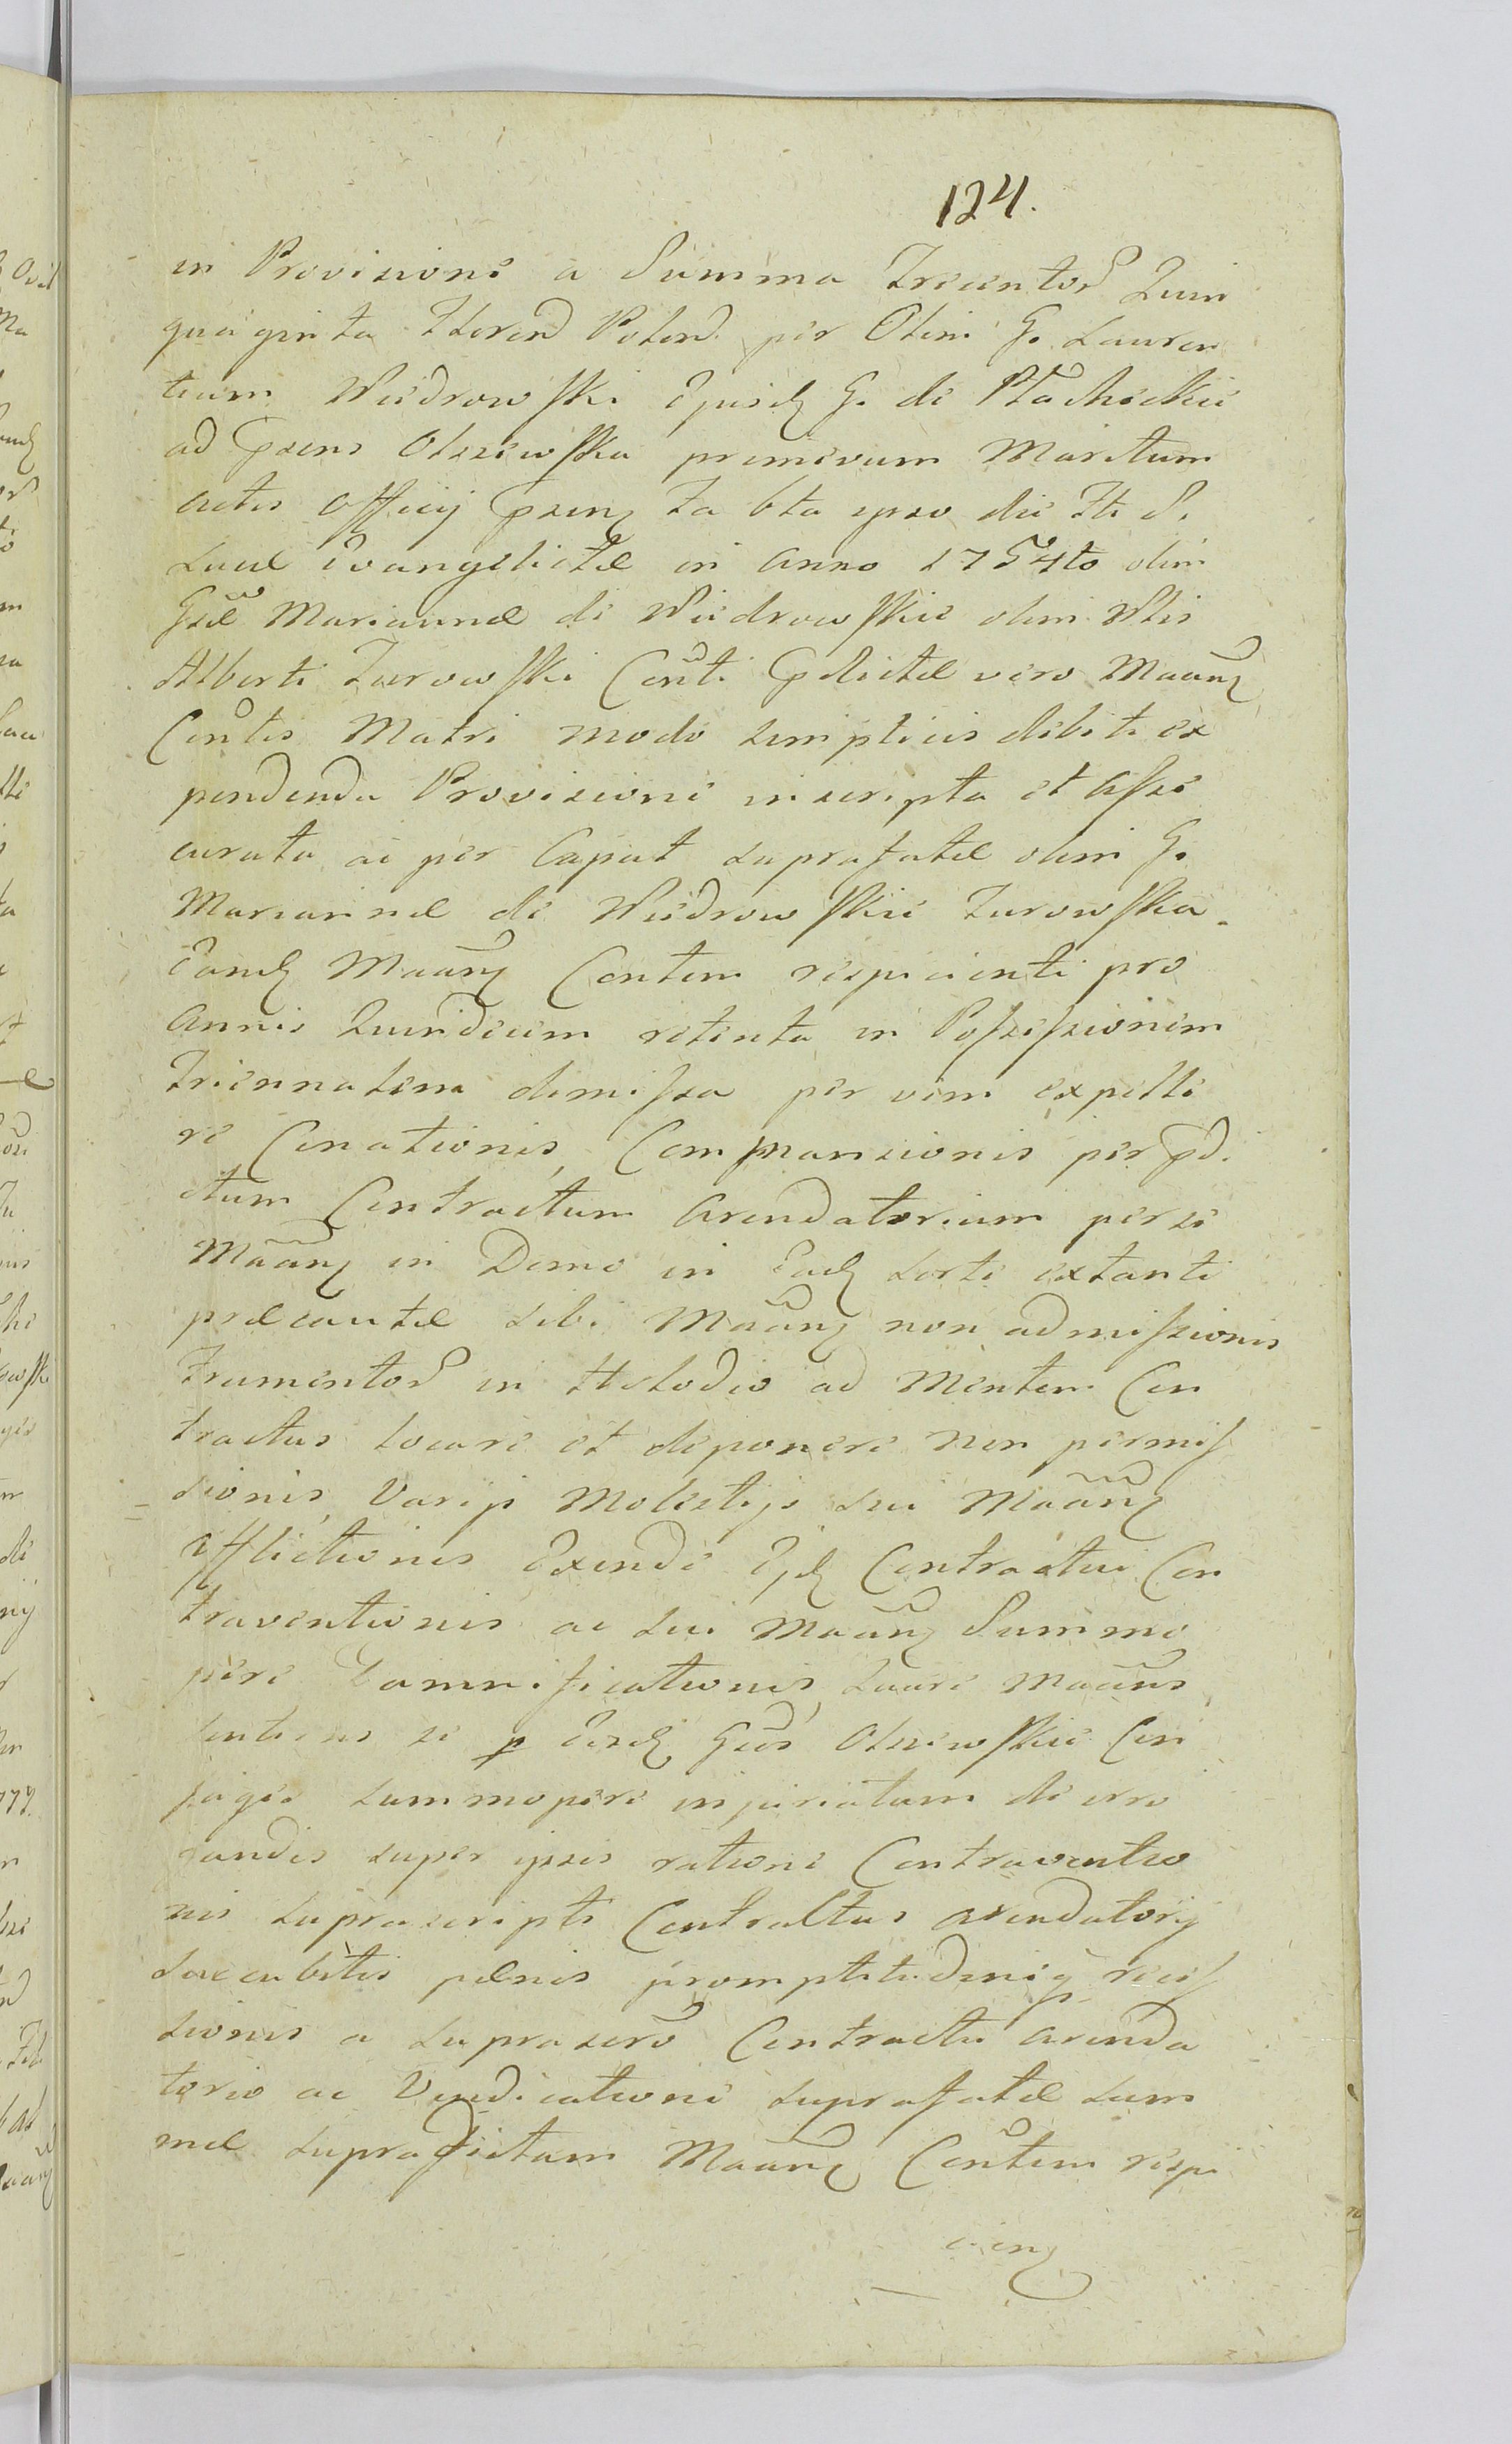 124.
in Provisione a Summa Trecentor Quin
quaginta Floren Polon. per Olim G. Lauren
tium Wiedrowski Ejusd G. de Płacheckie
ad prens Olszewska primevum Maritum
actis officij prens fa bta ipso die Fti S.
Lucæ Evangelistæ in Anno 1754to olim
Gsæ Mariannæ de Wiedrowskie olim Nlis
Alberti Zurowski Conti relictæ vero Maanz
Contis Matri modo simplicis debiti ex
pendenda Provisione inscripta et asse
curata ac per Caput suprafatæ olim G.
Mariannæ de Wiedrowskie Zurowska
Eand Maanz Contem respicienti pro
Annis Quindecim retenta in Possessionem
Triennalem dimissa per vim expelle
re Conationis, Commansionis per præd.
ctum Contractum Arendatorium per se
Maanz in Domo in Ead sorte extanti
præcautæ sibi Maanz non admissionis
Frumentor in Horodio ad Mentem Con
tractus locare et deponere non permis
sionis, Varijs Molestijs sui Maanz
afflictionis Exinde Ejd Contractui Con
traventionis ac sui Maanz Summo
pere Damnificationis, Quare Maans
sentiens se p Eosd Gsos Olszewskie Con
juges summopere injuriatum de irro
gandis super ipsis ratione Contraventio
nis suprascripti Contractus arendatorij
succubitis pænis promptitudiniq recis
sionis a suprascro Contractu arenda
torio ac Vindicatione suprafatæ sum
mæ supradictam Maanz Contem respi
cienz